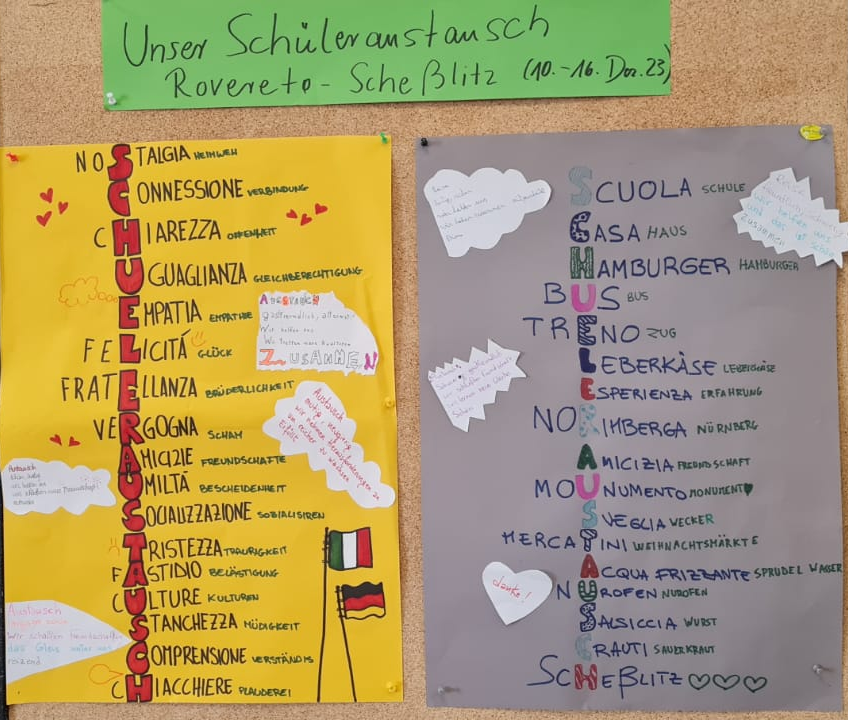 Unser Schüleraustausch
Rovereto - Scheßlitz (10.-16. Dez. 23)
NOSTALGIA HEIMWEH
CONNESSIONE VERBINDUNG
CHIAREZZA OFFENHEIT
UGUAGLIANZA GLEICHBERECHTIGUNG
EMPATIA EMPATHIE
FELICITÁ GLÜCK
FRATELLANZA BRÜDERLICHKEIT
VERGOGNA SCHAM
AMICIZIE FREUNDSCHAFTE
UMILTÀ BESCHEIDENHEIT
SOCIALIZZAZIONE SOZIALISIREN
TRISTEZZA TRAURIGKEIT
FASTIDIO BELÄSTIGUNG
CULTURE KULTUREN
STANCHEZZA MÜDIGKEIT
COMPRENSIONE VERSTÄNDIS
CHIACCHIERE PLAUDEREI
AUSTAUSCH
Wir helfen uns
ZUSAMMEN
Austausch
mutig, neugierig
wir nehmen Herausforderungen an
Austausch
SCUOLA SCHULE
CASA HAUS
HAMBURGER HAMBURGER
BUS BUS
TRENO ZUG
LEBERKÄSE LEBERKÄSE
ESPERIENZA ERFAHRUNG
NORIMBERGA NÜRNBERG
AMICIZIA FREUNDSCHAFT
MOUNUMENTO MONUMENT
SVEGLIA WECKER
MERCATINI WEIHNACHTSMÄRKTE
ACQUA FRIZZANTE SPRUDEL WASSER
NUROFEN NUROFEN
SALSICCIA WURST
CRAUTI SAUERKRAUT
SCHEßLITZ
wir helfen uns
und das ist schön
zusammen
danke!